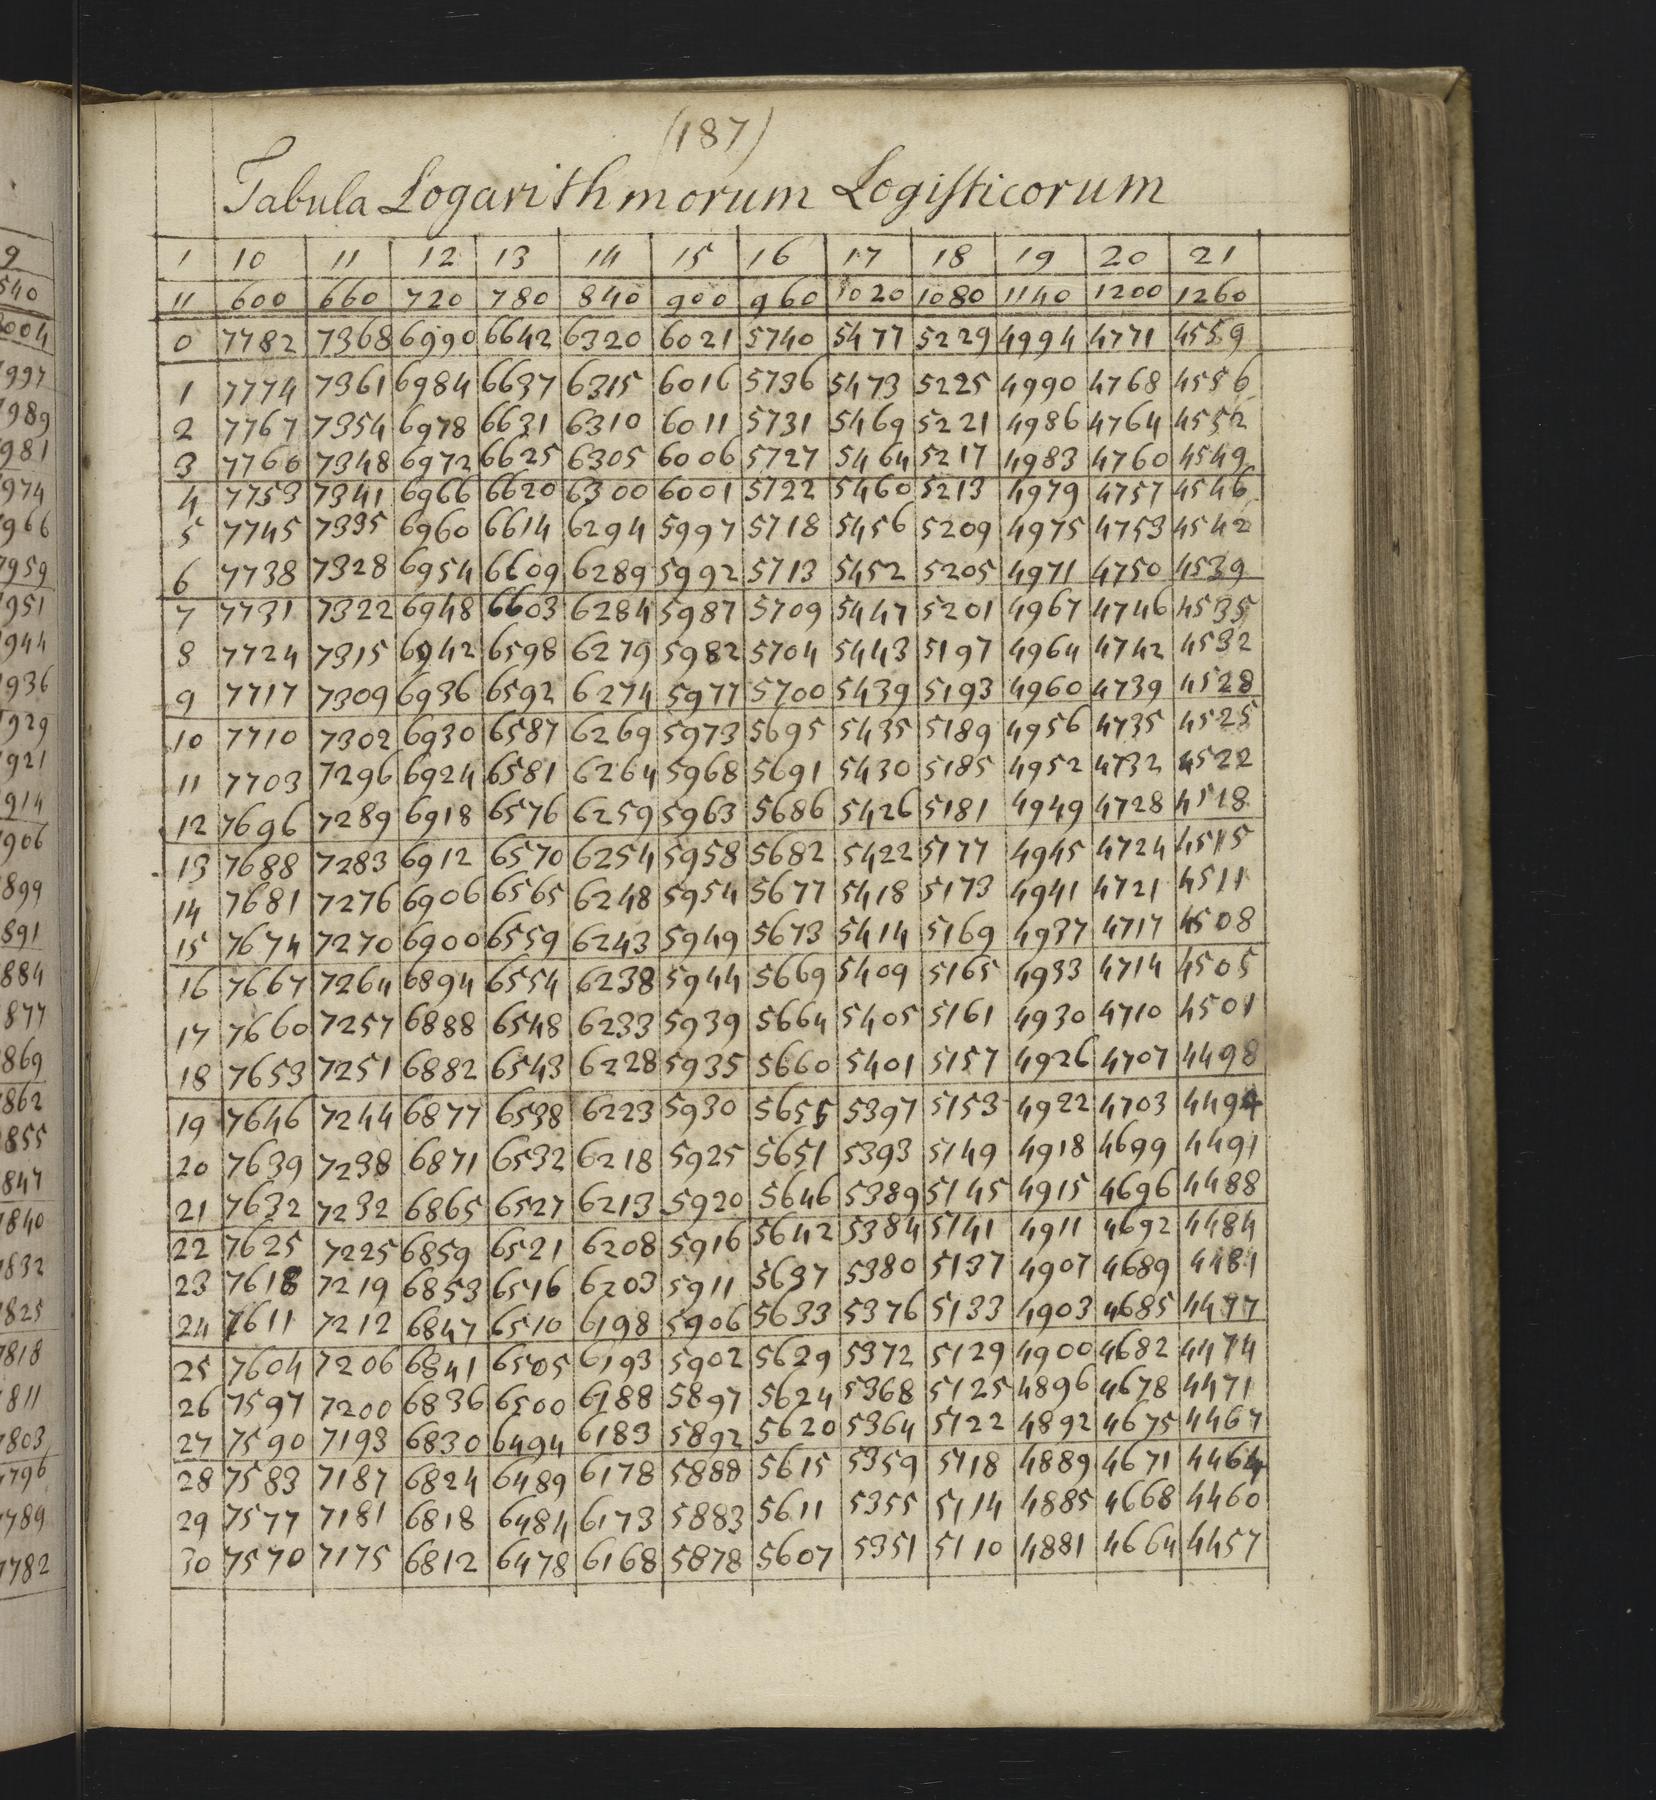 (187)
Tabula Logarithmorum Logisticorum
1 10 11 12 13 14 15 16 17 18 19 20 21
11 600 660 720 780 840 900 960 1020 1080 1140 1200 1260
0 7782 7368 6990 6642 6320 6021 5740 5477 5229 4994 4771 4559
1 7774 7361 6984 6637 6315 6016 5736 5473 5225 4990 4768 4556
2 7767 7354 6978 6631 6310 6011 5731 5469 5221 4986 4764 4552
3 7760 7348 6972 6625 6305 6006 5727 5464 5217 4983 4760 4549
4 7753 7341 6966 6620 6300 6001 5722 5460 5213 4979 4757 4546
5 7745 7335 6960 6614 6294 5997 5718 5456 5209 4975 4753 4542
6 7738 7328 6954 6609 6289 5992 5713 5452 5205 4971 4750 4539
7 7731 7322 6948 6603 6284 5987 5709 5447 5201 4967 4746 4535
8 7724 7315 6942 6598 6279 5982 5704 5443 5197 4964 4742 4532
9 7717 7309 6936 6592 6274 5977 5700 5439 5193 4960 4739 4528
10 7710 7302 6930 6587 6269 5973 5695 5435 5189 4956 4735 4525
11 7703 7296 6924 6581 6264 5968 5691 5430 5185 4952 4732 4522
12 7696 7289 6918 6576 6259 5963 5686 5426 5181 4949 4728 4518
13 7688 7283 6912 6570 6254 5958 5682 5422 5177 4945 4724 4515
14 7681 7276 6906 6565 6248 5954 5677 5418 5173 4941 4721 4511
15 7674 7270 6900 6559 6243 5949 5673 5414 5169 4937 4717 4508
16 7667 7264 6894 6554 6238 5944 5669 5409 5165 4933 4714 4505
17 7660 7257 6888 6548 6233 5939 5664 5405 5161 4930 4710 4501
18 7653 7251 6882 6543 6228 5935 5660 5401 5157 4926 4707 4498
19 7646 7244 6877 6538 6223 5930 5655 5397 5153 4922 4703 4494
20 7639 7238 6871 6532 6218 5925 5651 5393 5149 4918 4699 4491
21 7632 7232 6865 6527 6213 5920 5646 5389 5145 4915 4696 4488
22 7625 7225 6859 6521 6208 5916 5642 5384 5141 4911 4692 4484
23 7618 7219 6853 6516 6203 5911 5637 5380 5137 4907 4689 4481
24 7611 7212 6847 6510 6198 5906 5633 5376 5133 4903 4685 4477
25 7604 7206 6841 6505 6193 5902 5629 5372 5129 4900 4682 4474
26 7597 7200 6836 6500 6188 5897 5624 5368 5125 4896 4678 4471
27 7590 7193 6830 6494 6183 5892 5620 5364 5122 4892 4675 4467
28 7583 7187 6824 6489 6178 5888 5615 5359 5118 4889 4671 4464
29 7577 7181 6818 6484 6173 5883 5611 5355 5114 4885 4668 4460
30 7570 7175 6812 6478 6168 5878 5607 5351 5110 4881 4664 4457